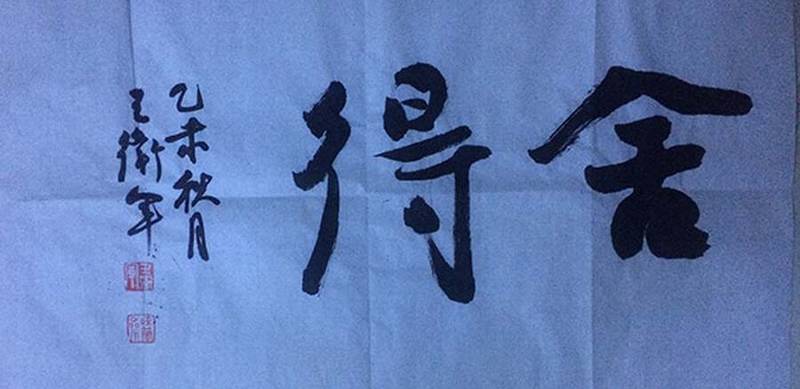 舍得
乙未秋月
王衛军